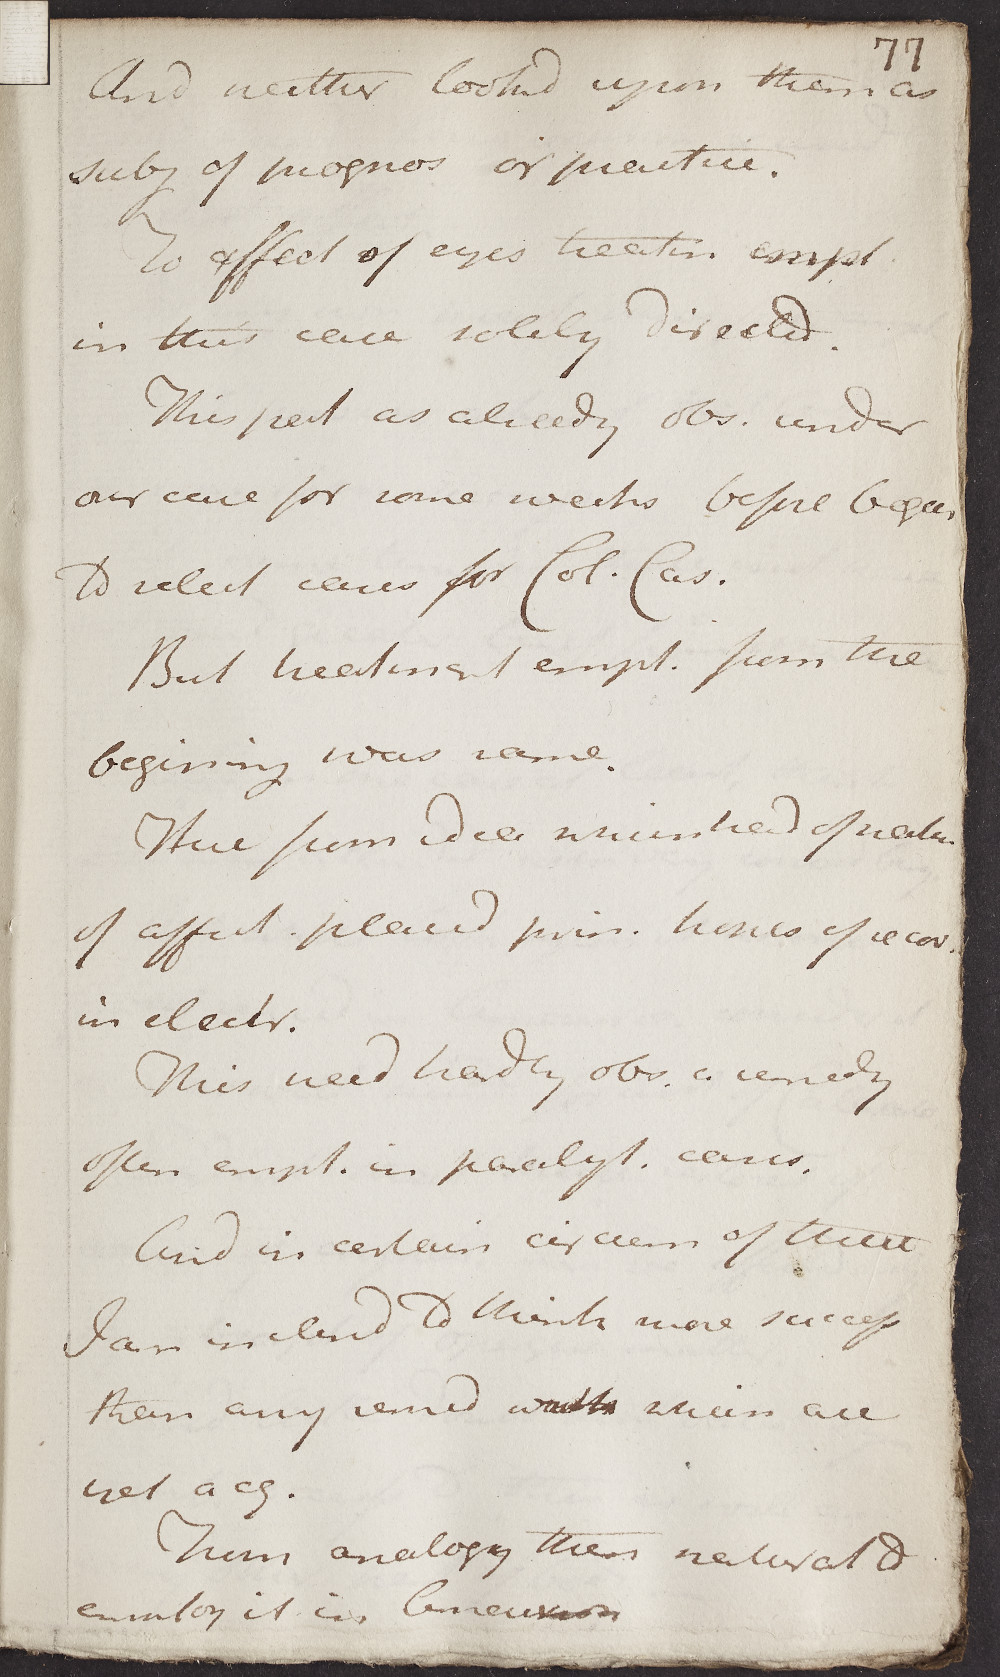 77
And neither lookd upon them as
subj of prognos or practice.
To affect of eyes treatm empl
in this case solely directed.
This pat as already obs. under
our care for some weeks before began
to select cases for Col. Cas.
But treatment empl. from the
begining was same.
Here from idea which had of natu
of affect. placed prin. hopes of recov.
in electr.
This need hardly obs. a remedy
often empl. in paralyt. cases.
And in certain circum of these
I am inclind to think more success
than any remed which are
yet acq.
From analogy then natural to
employ it in